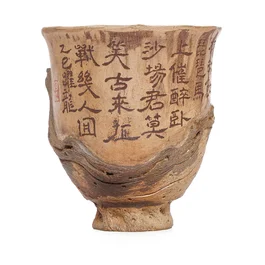 琵琶馬
上催醉卧
沙場君莫
笑古來征
戰幾人回
乙巳